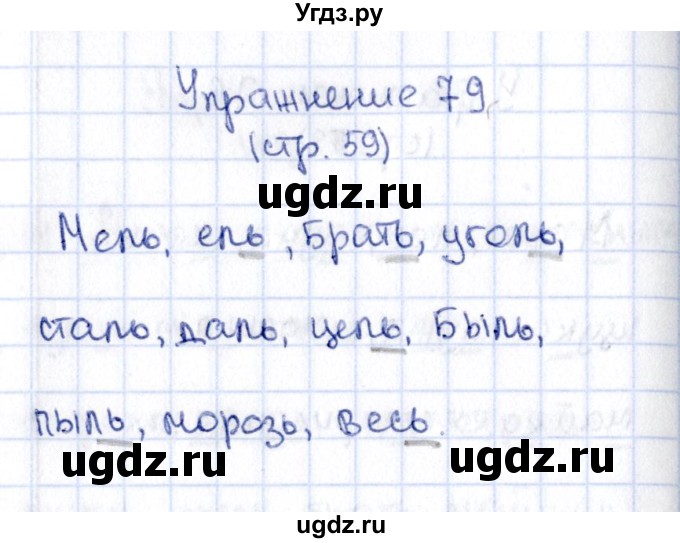 Угдз.ру
Упражнение 79
(стр. 59)
ugdz.ru
Мель, ель, Брать, уголь,
сталь, даль, цель, Быль,
пыль, морозь, весь.
ugdz.ru ugdz.ru
ugdz.ru